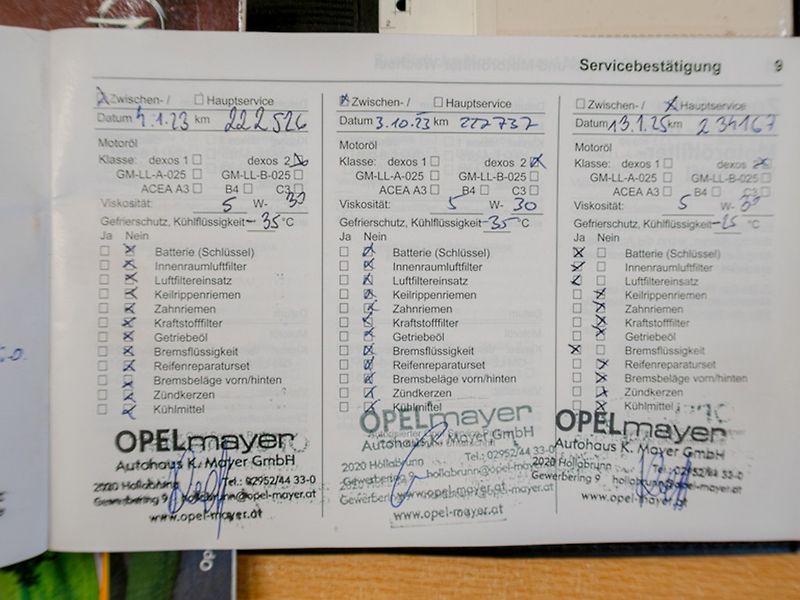 Servicebestätigung 9
Zwischen- / Hauptservice
Datum 4.1.23 km 222526
Motoröl
Klasse: dexos 1 dexos 2
GM-LL-A-025 GM-LL-B-025
ACEA A3 B4 C3
Viskosität: 5 W- 30
Gefrierschutz, Kühlflüssigkeit -35 °C
Ja Nein
Batterie (Schlüssel)
Innenraumluftfilter
Luftfiltereinsatz
Keilrippenriemen
Zahnriemen
Kraftstofffilter
Getriebeöl
Bremsflüssigkeit
Reifenreparaturset
Bremsbeläge vorn/hinten
Zündkerzen
Kühlmittel
OPELmayer
Autohaus K. Mayer GmbH
2020 Hollabrunn Tel.: 02952/44 33-0
Gewerbering 9 hollabrunn@opel-mayer.at
www.opel-mayer.at
Zwischen- / Hauptservice
Datum 3.10.23 km 227737
Motoröl
Klasse: dexos 1 dexos 2
GM-LL-A-025 GM-LL-B-025
ACEA A3 B4 C3
Viskosität: 5 W- 30
Gefrierschutz, Kühlflüssigkeit -35 °C
Ja Nein
Batterie (Schlüssel)
Innenraumluftfilter
Luftfiltereinsatz
Keilrippenriemen
Zahnriemen
Kraftstofffilter
Getriebeöl
Bremsflüssigkeit
Reifenreparaturset
Bremsbeläge vorn/hinten
Zündkerzen
Kühlmittel
OPELmayer
Autohaus K. Mayer GmbH
2020 Hollabrunn Tel.: 02952/44 33-0
Gewerbering 9 hollabrunn@opel-mayer.at
www.opel-mayer.at
Zwischen- / Hauptservice
Datum 13.1.25 km 234167
Motoröl
Klasse: dexos 1 dexos 2
GM-LL-A-025 GM-LL-B-025
ACEA A3 B4 C3
Viskosität: 5 W- 30
Gefrierschutz, Kühlflüssigkeit -25 °C
Ja Nein
Batterie (Schlüssel)
Innenraumluftfilter
Luftfiltereinsatz
Keilrippenriemen
Zahnriemen
Kraftstofffilter
Getriebeöl
Bremsflüssigkeit
Reifenreparaturset
Bremsbeläge vorn/hinten
Zündkerzen
Kühlmittel
OPELmayer
Autohaus K. Mayer GmbH
2020 Hollabrunn Tel.: 02952/44 33-0
Gewerbering 9 hollabrunn@opel-mayer.at
www.opel-mayer.at